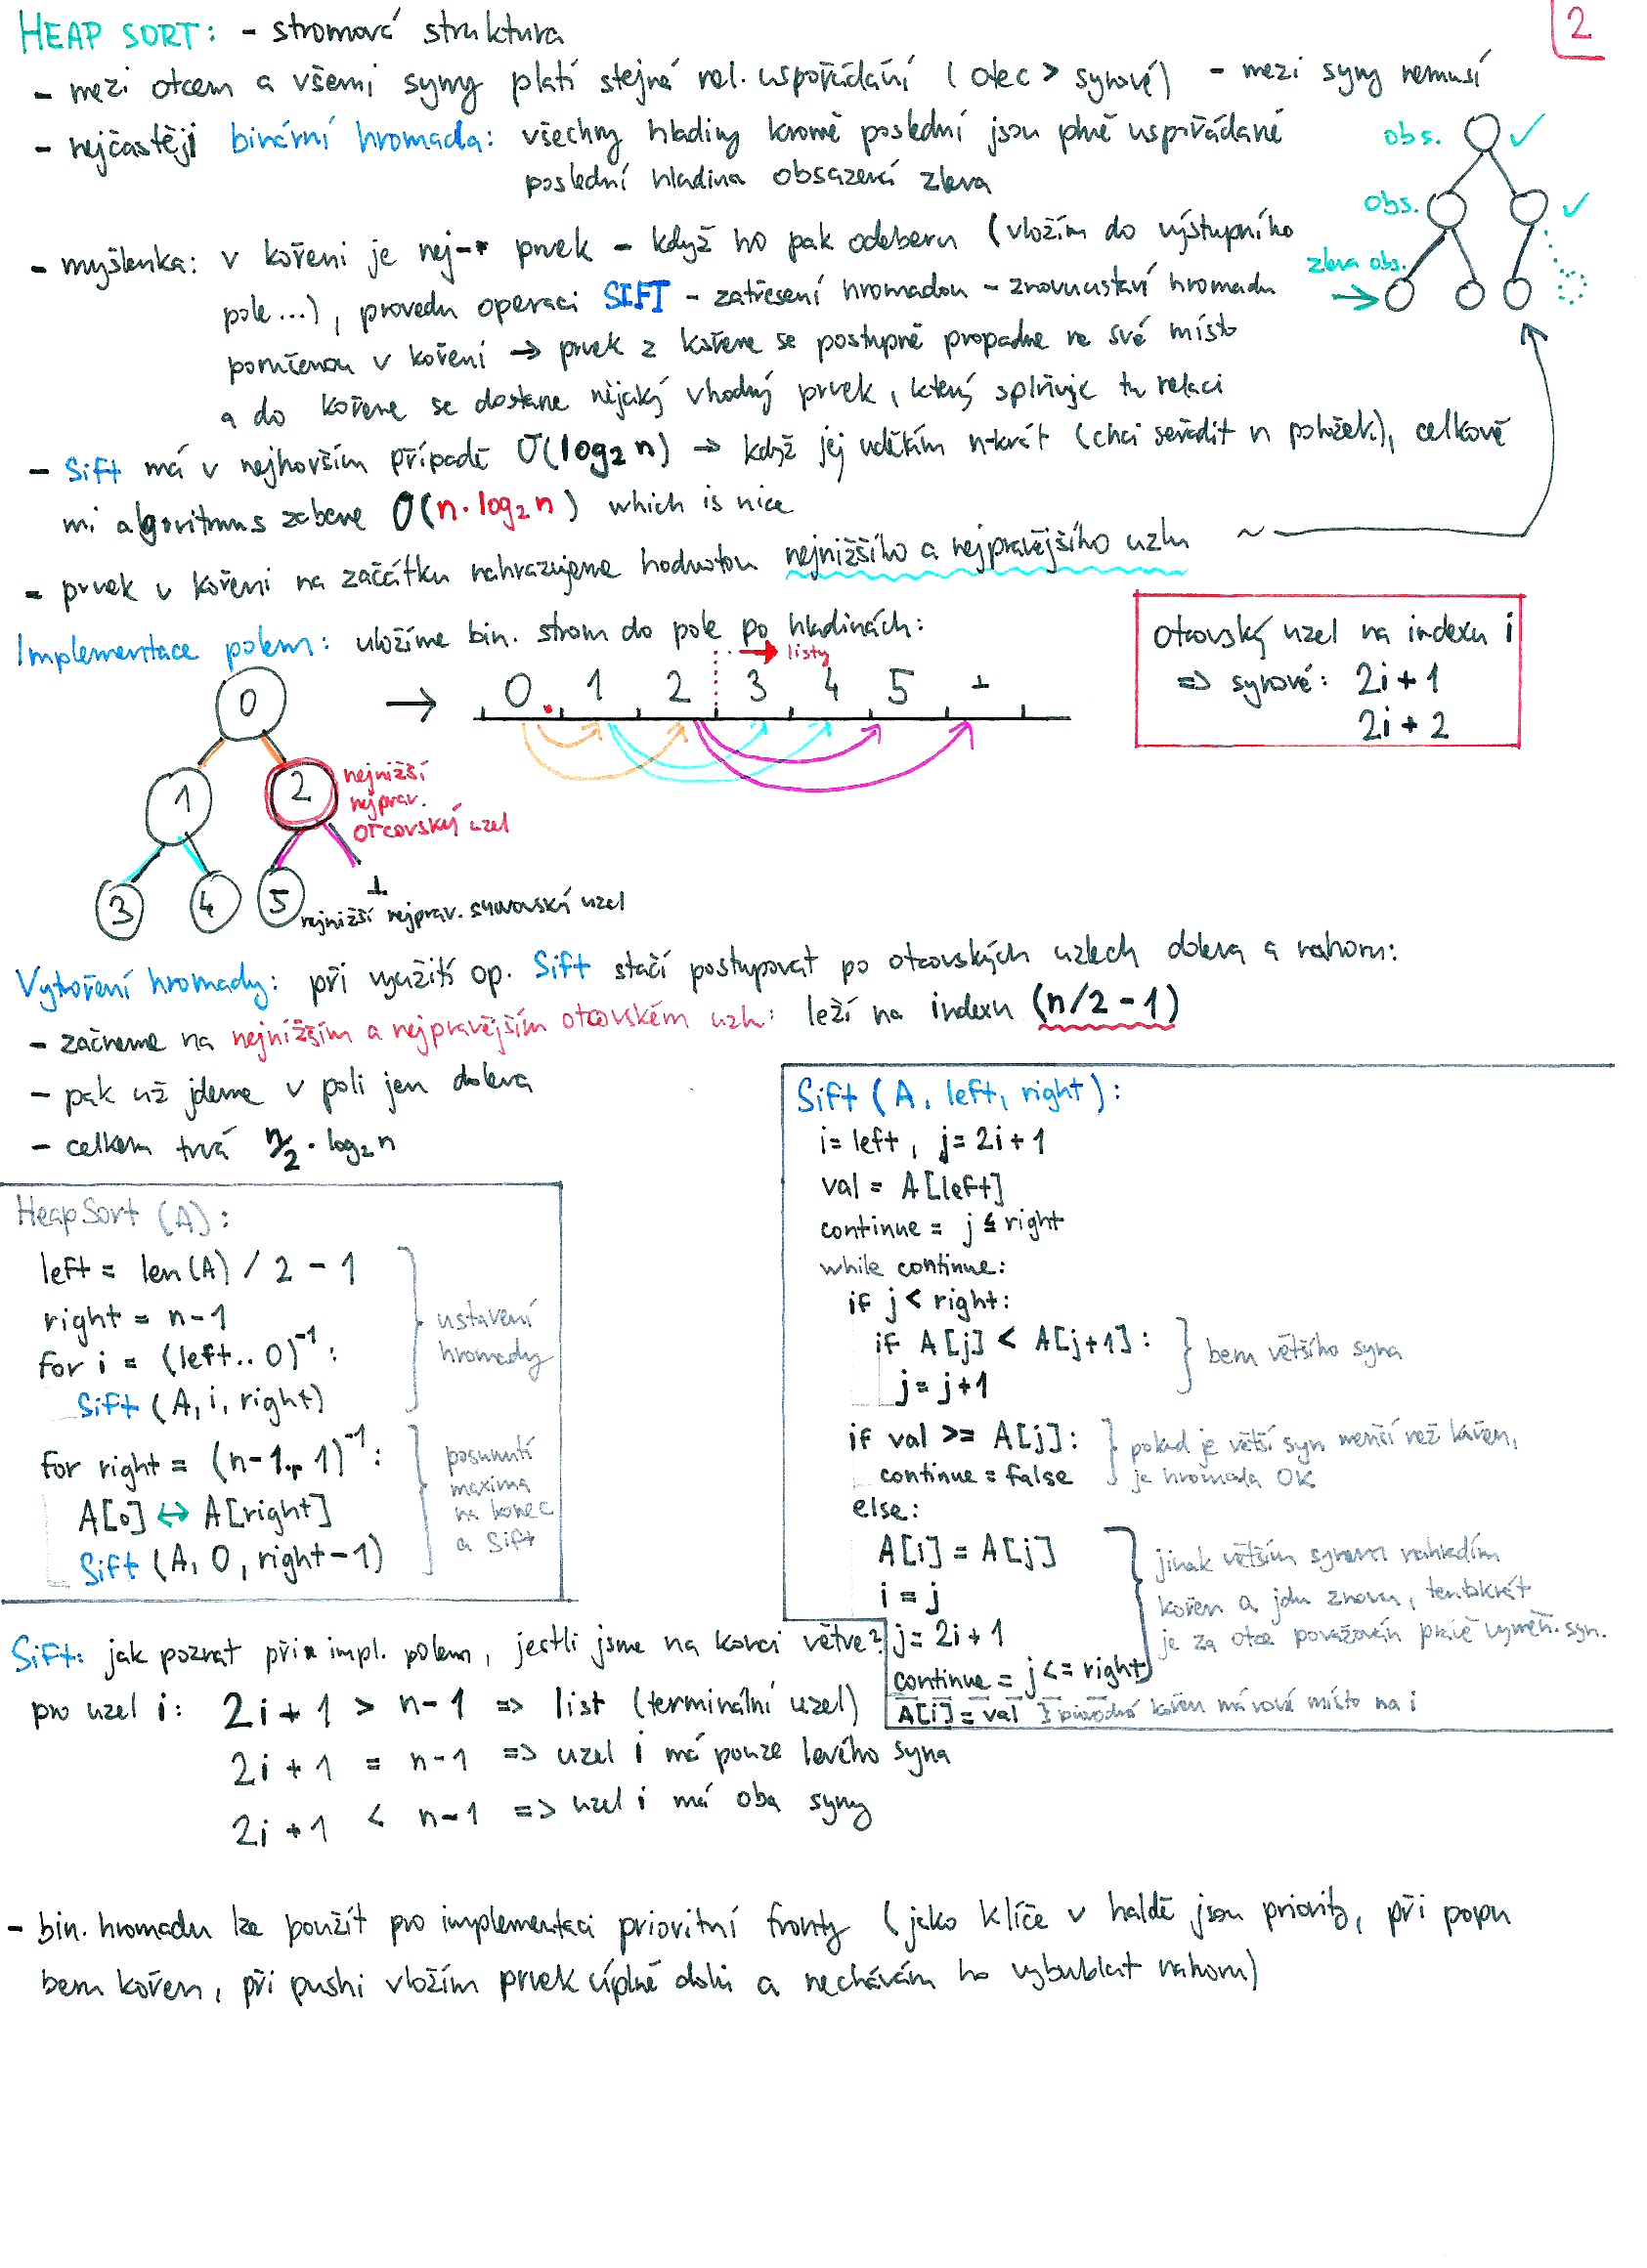 2
HEAP SORT: - stromová struktura
- mezi otcem a všemi syny platí stejná rel. uspořádání (otec > synové) - mezi syny nemusí
- nejčastěji binární hromada: všechny hladiny kromě poslední jsou plně uspořádané
poslední hladina obsazená zleva
obs. ✓
obs. ✓
zleva obs.
- myšlenka: v kořeni je nej-* prvek - když ho pak odeberu (vložím do výstupního
pole...), provedu operaci SIFT - zatřesení hromadou - znovuustaví hromadu
porušenou v kořeni → prvek z kořene se postupně propadne na své místo
a do kořene se dostane nějaký vhodný prvek, který splňuje tu relaci
- Sift má v nejhorším případě O(log₂ n) → když jej udělám n-krát (chci seřadit n položek), celkově
mi algoritmus zabere O(n·log₂ n) which is nice
- prvek v kořeni na začátku nahrazujeme hodnotou nejnižšího a nejpravějšího uzlu ~
Implementace polem: uložíme bin. strom do pole po hladinách:
→ listy
0 → 0 1 2 3 4 5 ⊥
otcovský uzel na indexu i
=> synové: 2i+1
2i+2
1 2 nejnižší
nejprav.
otcovský uzel
3 4 5 ⊥
nejnižší nejprav. synovský uzel
Vytvoření hromady: při využití op. Sift stačí postupovat po otcovských uzlech doleva a nahoru:
- začneme na nejnižším a nejpravějším otcovském uzlu: leží na indexu (n/2 - 1)
- pak už jdeme v poli jen doleva
- celkem trvá n/2 · log₂ n
HeapSort (A):
left = len(A) / 2 - 1
right = n-1
for i = (left..0)⁻¹:
Sift (A, i, right)
ustavení
hromady
for right = (n-1..1)⁻¹:
A[0] ↔ A[right]
Sift (A, 0, right-1)
posunutí
maxima
na konec
a Sift
Sift (A, left, right):
i = left, j = 2i+1
val = A[left]
continue = j ≤ right
while continue:
if j < right:
if A[j] < A[j+1]:
j = j+1
beru většího syna
if val >= A[j]:
continue = false
pokud je větší syn menší než kořen,
je hromada OK
else:
A[i] = A[j]
i = j
j = 2i+1
continue = j <= right
jinak větším synem nahradím
kořen a jdu znovu, tentokrát
je za otce považován právě vyměň. syn.
A[i] = val } původní kořen má nové místo na i
Sift: jak poznat při impl. polem, jestli jsme na konci větve?
pro uzel i: 2i + 1 > n-1 => list (terminální uzel)
2i + 1 = n-1 => uzel i má pouze levého syna
2i + 1 < n-1 => uzel i má oba syny
- bin. hromadu lze použít pro implementaci prioritní fronty (jako klíče v haldě jsou priority, při popu
beru kořen, při pushi vložím prvek úplně dolů a nechávám ho vybublat nahoru)